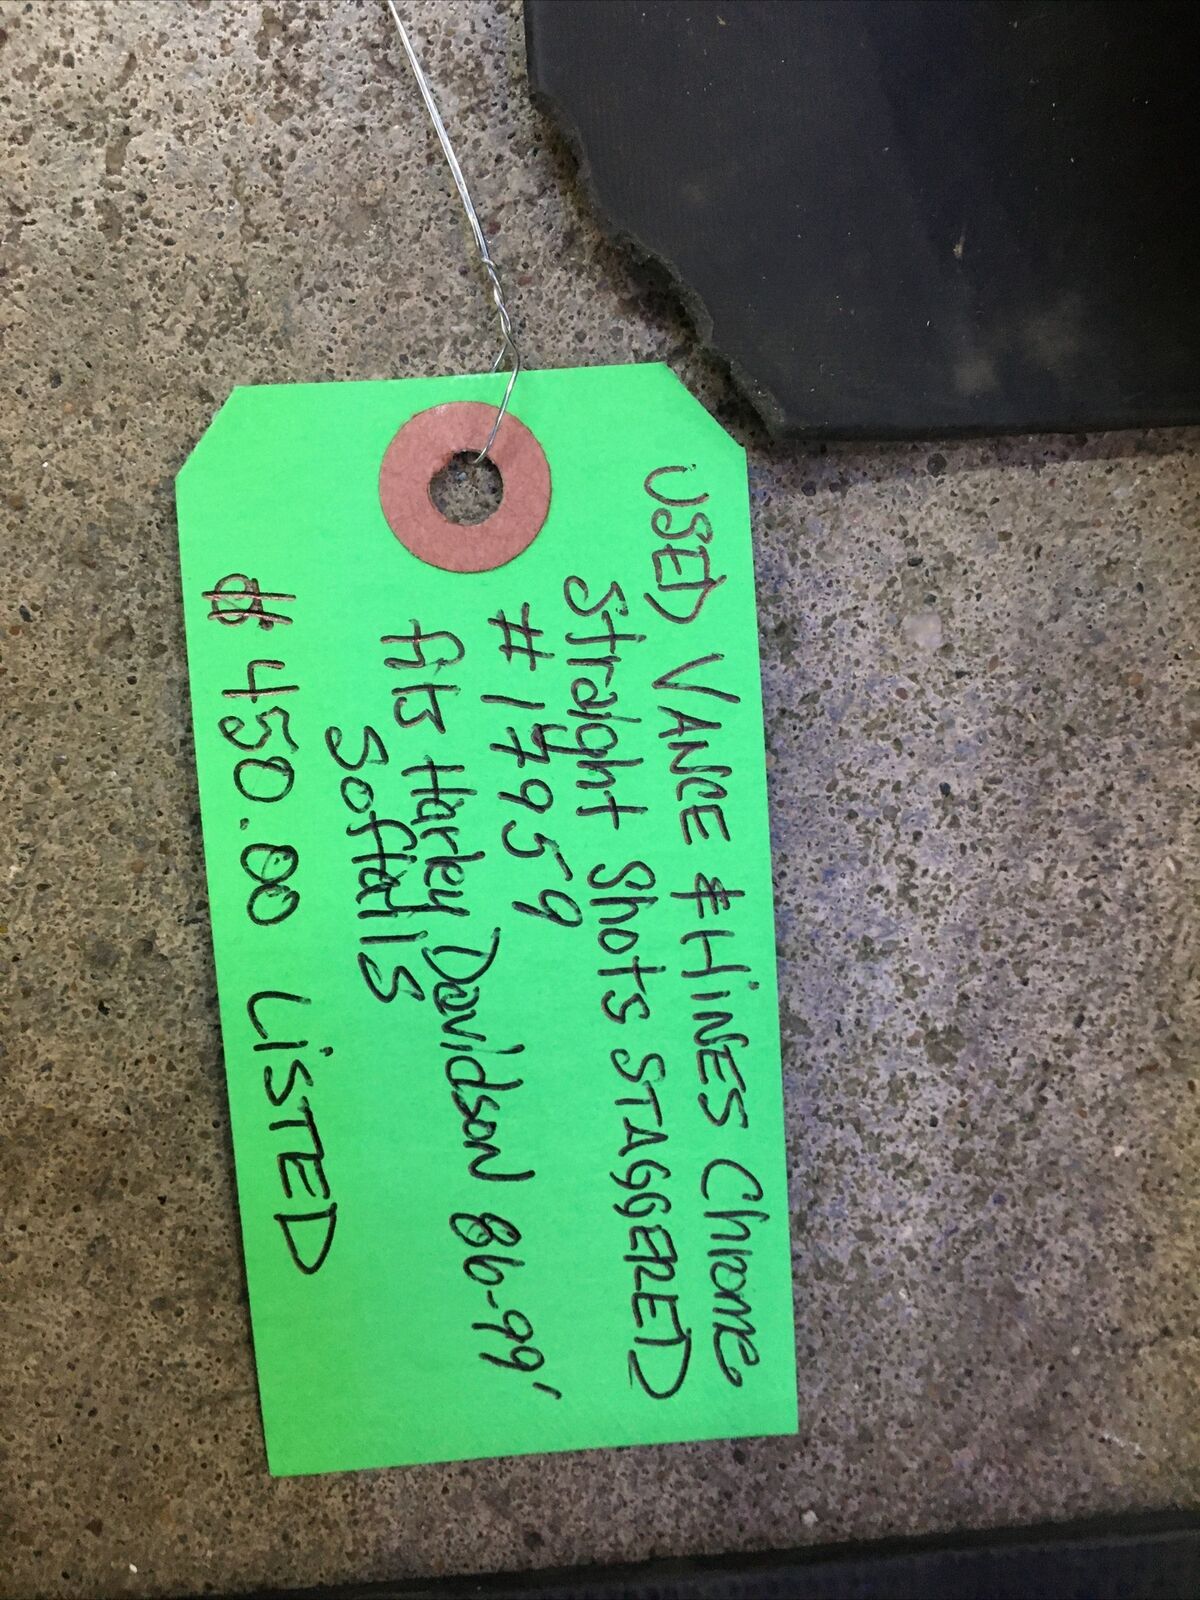 USED VANCE & HINES Chrome
Straight Shots STAGGERED
# 17959
fits Harley Davidson 86-99'
Softails
$ 450.00 LiSTED